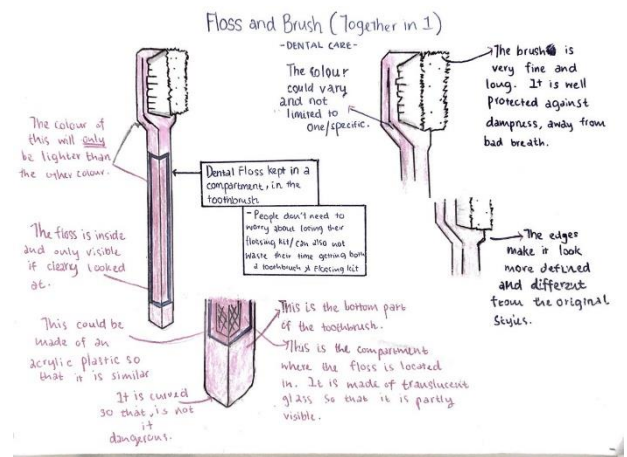 Floss and Brush (Together in 1)
-DENTAL CARE-
The colour
could vary
and not
limited to
one/specific.
The brush is
very fine and
long. It is well
protected against
dampness, away from
bad breath.
The colour of
this will only
be lighter than
the other colour.
Dental Floss kept in a
compartment, in the
toothbrush
- People don't need to
worry about losing their
flossing kit/can also not
waste their time getting both
a toothbrush & flossing kit
The floss is inside
and only visible
if cleary looked
at.
The edges
make it look
more defined
and different
from the original
styles.
This could be
made of an
acrylic plastic so
that it is similar
This is the bottom part
of the toothbrush.
This is the compartment
where the floss is located
in. It is made of translucent
glass so that it is partly
visible.
It is curved
so that, is not
it
dangerous.